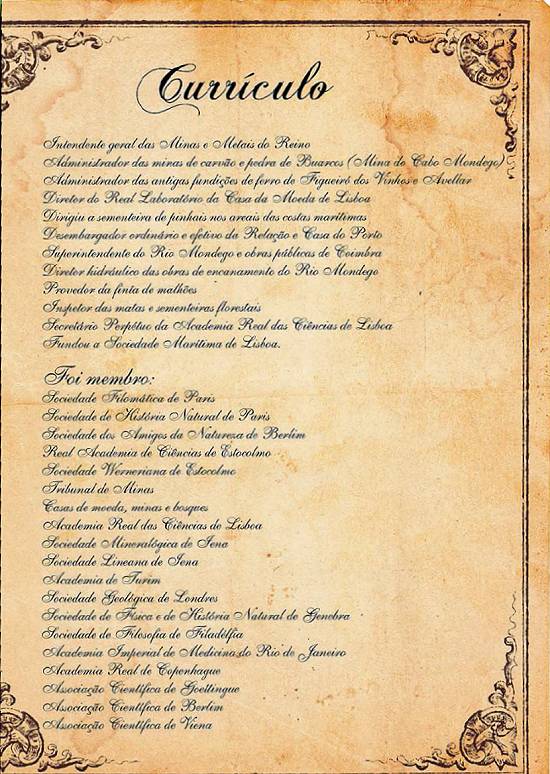 Currículo
Intendente geral das Minas e Metais do Reino
Administrador das minas de carvão e pedra de Buarcos (Mina de Cabo Mondego)
Administrador das antigas fundições de ferro de Figueiró dos Vinhos e Avellar
Diretor do Real Laboratório da Casa da Moeda de Lisboa
Dirigiu a sementeira de pinhais nos areais das costas marítimas
Desembargador ordinário e efetivo da Relação e Casa do Porto
Superintendente do Rio Mondego e obras públicas de Coimbra
Diretor hidráulico das obras de encanamento do Rio Mondego
Provedor da finta de malhões
Inspetor das matas e sementeiras florestais
Secretário Perpétuo da Academia Real das Ciências de Lisboa
Fundou a Sociedade Marítima de Lisboa.
Foi membro:
Sociedade Filomática de Paris
Sociedade de História Natural de Paris
Sociedade dos Amigos da Natureza de Berlim
Real Academia de Ciências de Estocolmo
Sociedade Werneriana de Estocolmo
Tribunal de Minas
Casas de moeda, minas e bosques
Academia Real das Ciências de Lisboa
Sociedade Mineralógica de Iena
Sociedade Lineana de Iena
Academia de Turim
Sociedade Geológica de Londres
Sociedade de Física e de História Natural de Genebra
Sociedade de Filosofia de Filadélfia
Academia Imperial de Medicina do Rio de Janeiro
Academia Real de Copenhague
Associação Científica de Goettingue
Associação Científica de Berlim
Associação Científica de Viena